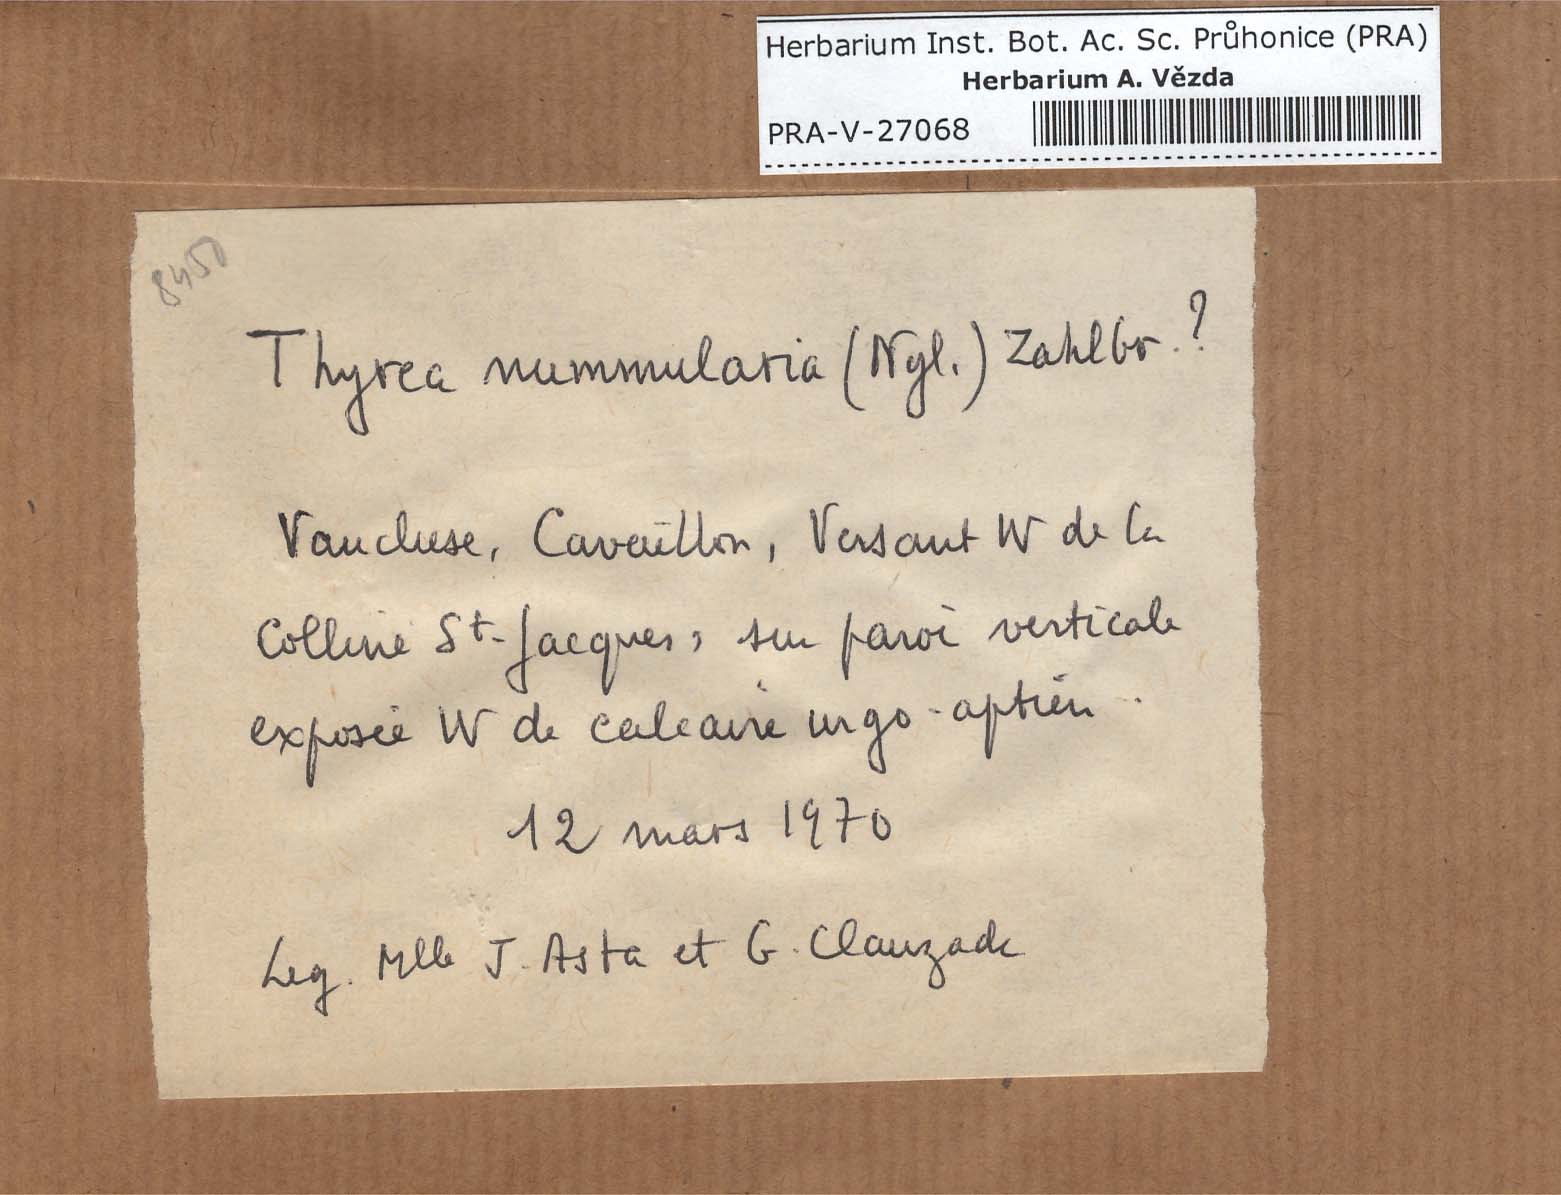 Herbarium Inst. Bot. Ac. Sc. Průhonice (PRA)
Herbarium A. Vězda
PRA-V-27068
8450
Thyrea nummularia (Nyl.) Zahlbr. ?
Vaucluse, Cavaillon, Versant W de la
Colline St-Jacques, sur paroi verticale
exposée W de calcaire urgo-aptien.
12 mars 1970
Leg. Mlle J. Asta et G. Clauzade